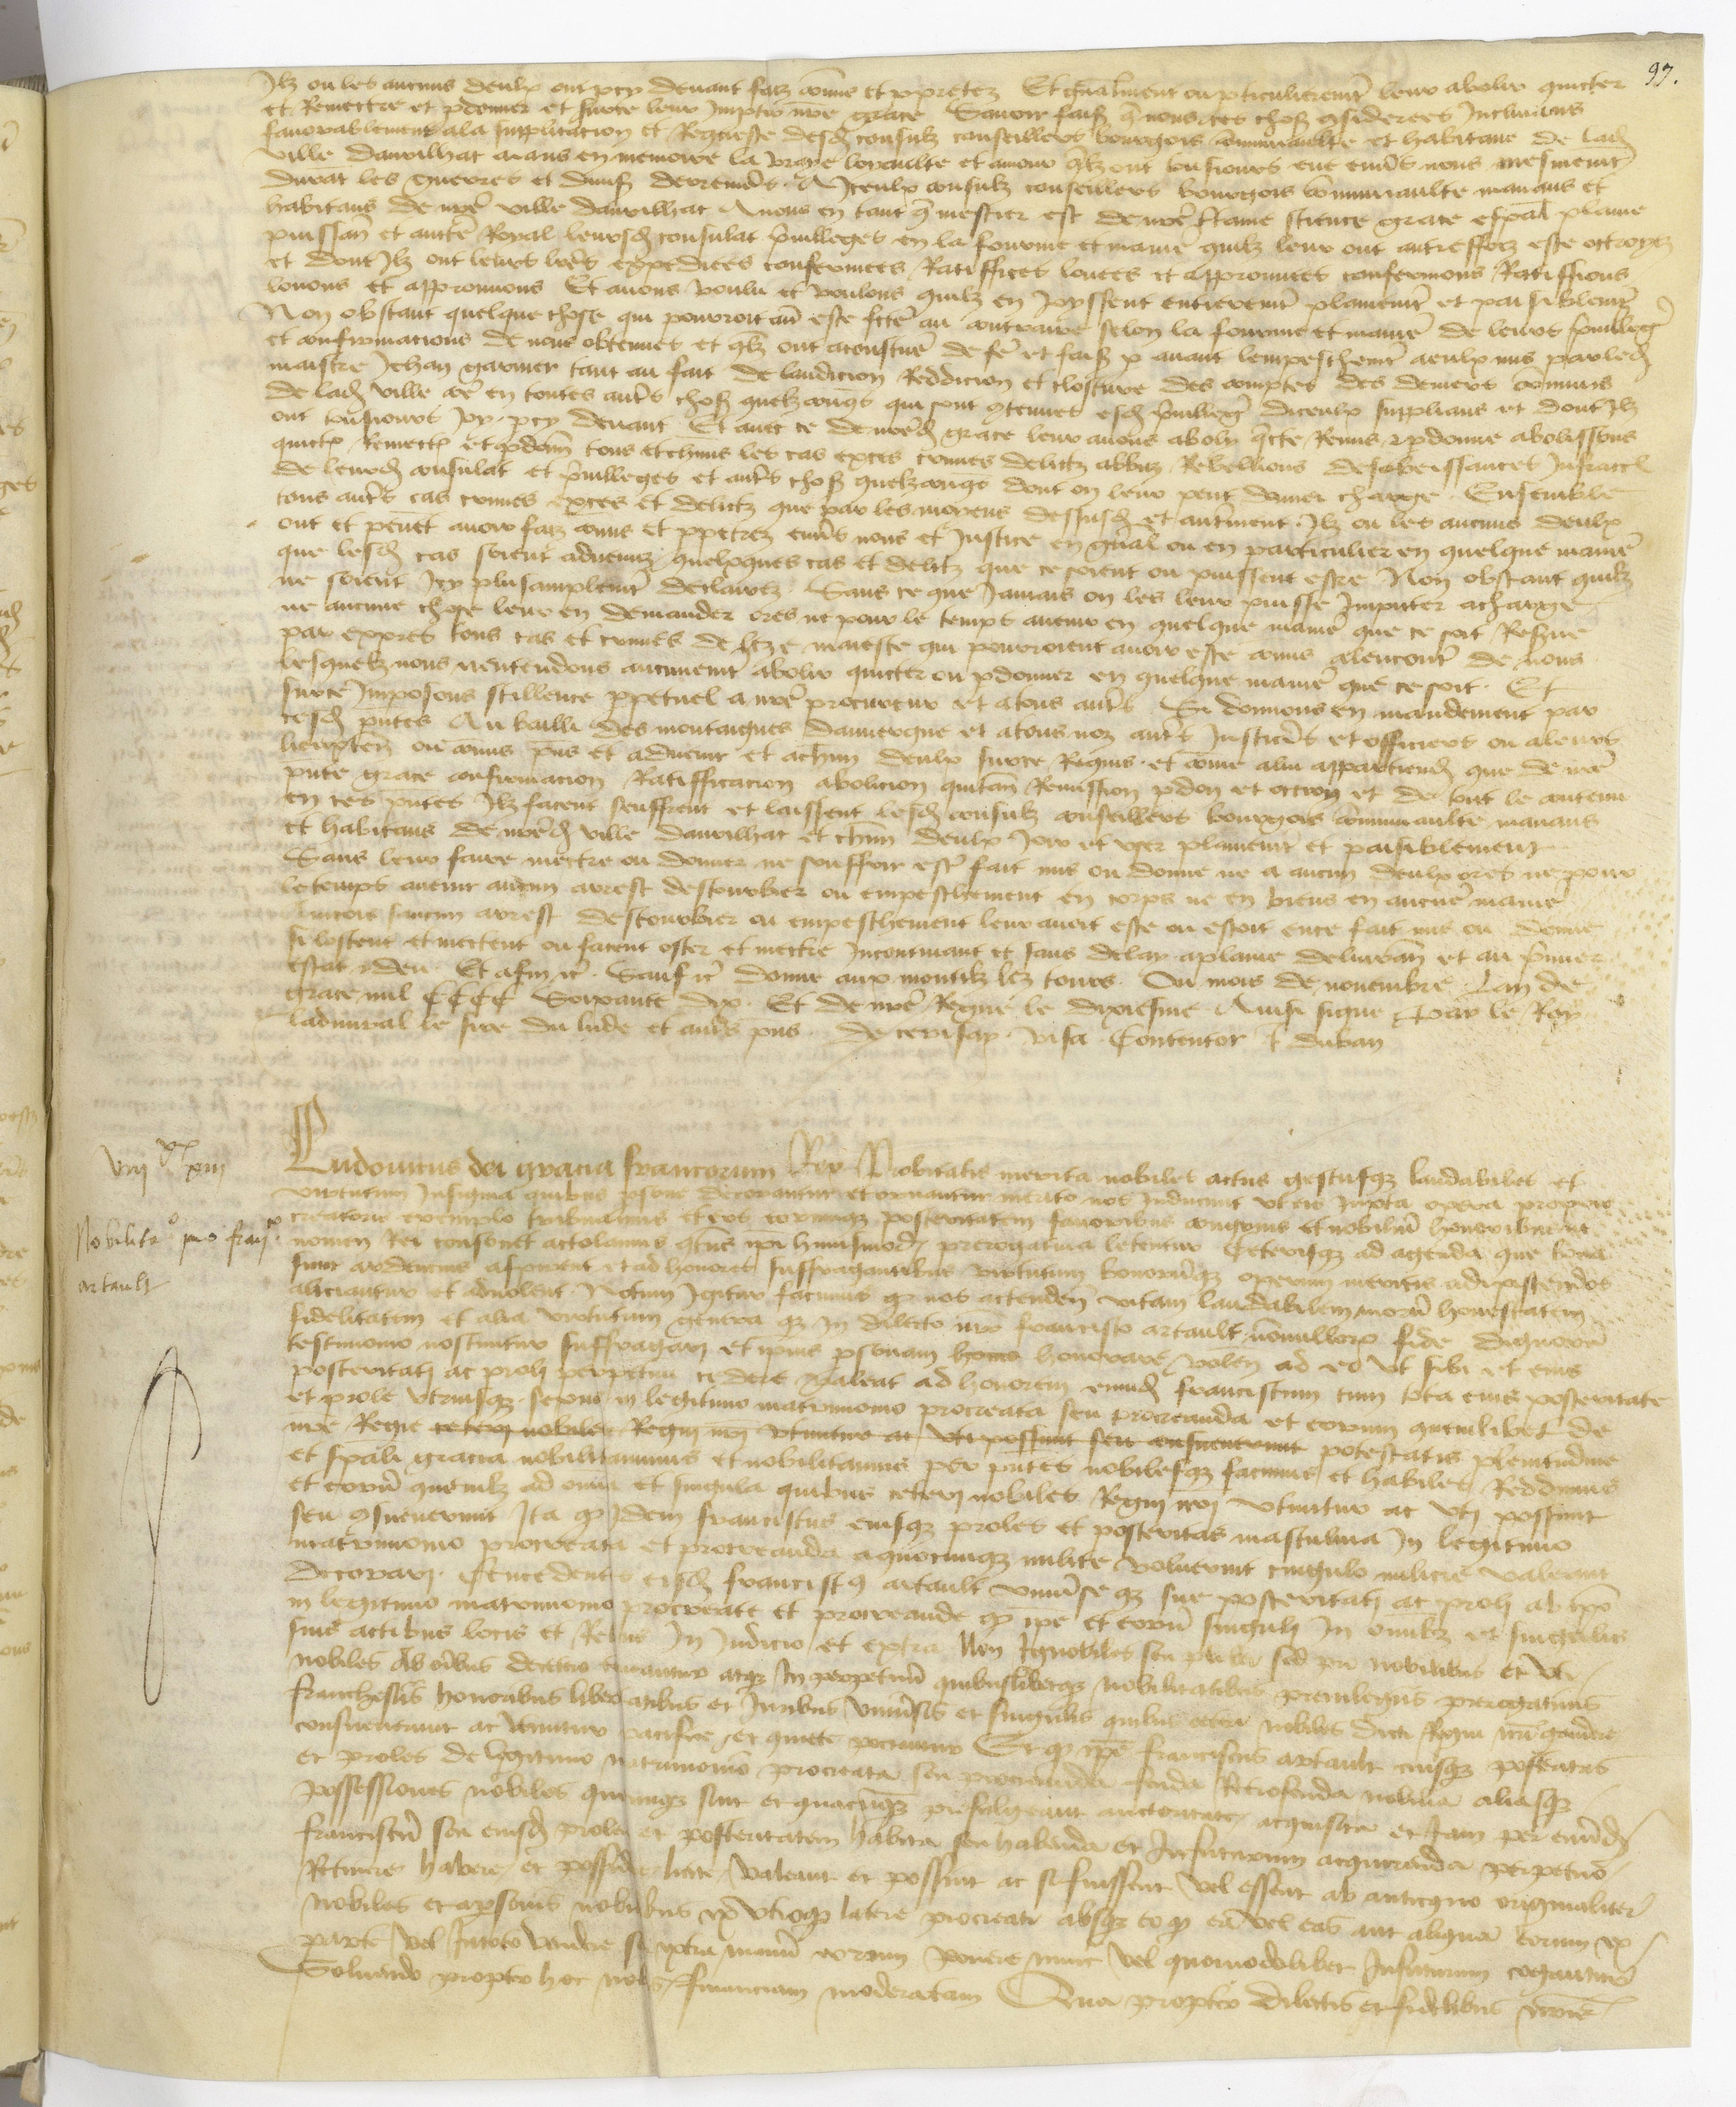 97.
Ilz ou les aucuns deulx ont pcy devant faiz commis et perpetrez Et generalment ou particulierement leur abolir quicter
et Remectre et pardonner et surce leur Impartir nostre grace Savoir faisons que nous ces choses considerees Inclinans
favorablement ala supplicacion et Requeste desd consulz conseillers bourgois communaulte et habitans de lad
ville daurilhac aians en memoire la vraye loyaulte et amour quilz ont tousiours eue envers nous mesment
durat les guerres et divis A Iceulx consulz conseillers bourgois communaulte manans et
habitans de nostre ville daurilhac Avons en tant que mestier est de nostre certaine science grace especial plaine
puissance et aucte Royal leursd consulat privilleges en la fourme et maniere quilz leur ont autreffoiz este octroyez
et dont Ilz ont leurs lettres expedices confermees Ratiffiees louees et approuvees confermons Ratiffions
louons et approuvons Et avons voulu et voulons quilz en Joyssent entierement plainement et paisiblement
Non obstant quelque chose qui pourroit avoir este fcte au contraire selon la fourme et maniere de leurs privilleges
et confirmacions de nous obtenues et quilz ont acoustume de fere et faiz par avant lempeschement aeulx mis par led
maistre Jehan garnier tant au fait de laudicion Reddicion et closture des comptes des deniers communs
de lad ville come en toutes autres choses quelzconqs qui sont contenues esd privilleges diceulx supplians et dont Ilz
ont tousiours Joy pcy devant Et avec ce de nostred grace leur avons aboly quicte Remis et pdonne abolissons
quictons Remectons et pdonnons tous et chuns les cas exces crimes delictz abbuz Rebellions desobeissances Infraccions
de leursd consulat et privilleges et autres choses quelzconqs dont on leur peut donner charge Ensemble
tous autres cas crimes exces et delictz que par les moyens dessusd et autrement Ilz ou les aucuns deulx
ont et pevent avoir faiz commis et ppetrez envers nous et Justice en gnal ou en particulier en quelque maniere
que lesd cas soient advenuz quelxques cas et delictz que ce soient ou puissent estre Non obstant quilz
ne soient Icy plusamplement declairez Sans ce que Jamais on les leur puisse Imputer acharge
ne aucune chose leur en demander ores ne pour le temps avenir en quelque maniere que ce soit Reserve
par expres tous cas et crimes de leze maieste qui pourroient avoir este commis alencontre de nous
lesquelz nous nentendons aucunement abolir quicter ou pdonner en quelque maniere que ce soit Et
surce Imposons scillence ppetuel a nostre procureur et atous autres Si donnons en mandement par
cesd presentes Au bailli des montaignes dauvergne et atous noz autres Justiciers et officiers ou aleurs
lieuxtens ou commis presens et advenir et achun deulx surce Requis et come alui appartiendra que de nostre
pnte grace confirmacion Ratifficacion abolicion quictance Remission pdon et octroy et de tout le contenu
en ces pntes Ilz facent seuffrent et laissent lesd consulz conseillers bourgois communaulte manans
et habitans de nostred ville daurilhac et chun deulx Joir et user plainement et paisiblement
Sans leur faire mectre ou donner ne souffrir estre fait mis ou donne ne a aucun deulx ores ne pour
letemps avenir aucun arrest destourbier ou empeschement en corps ne en biens en aucune maniere
Aincois saucun arrest destourbier ou empeschement leur avoit este ou estoit en ce fait mis ou donne
si lostent et mectent ou facent oster et mectre Incontinant et sans delay aplaine delivrance et au premier
estat et deu Et afin etc Sauf etc donne aux montilz lez tours Ou mois de novembre Lan de
grace mil CCCC Soixante dix Et de nostre Regne le dixiesme Ainsi signe Par le Roy
ladmiral le sire du lude et autres pns De cerisay visa Contentor J duban
viii xx xiii
Nobilitacio pro francisco
artault
Ludovicus dei gracia francorum Rex Probitatis merita nobiles actus gestusque laudabiles et
virtutum Insignia quibus persone decorantur et ornantur merito nos Inducunt ut eis Juxta opera proprio
creatoris exemplo tribuamus et eos eorumque posteritatem favoribus congruis et nobilium honoribus ut
nomen Rei consonet actolamus quatenus ipi huiusmodi prerogativa letentur Ceterisque ad agenda que bona
sunt ardencius aspirent et ad honores suffragantibus virtutum bonorumque operum meritis adipiscendos
aliciantur et advolent Notum Igitur facimus quod nos actendentes vitam laudabilem morum honestatem
fidelitatem et alia virtutum genera que in dilecto nostro francisco artault nonnullorum fide dignorum
testimonio noscuntur suffragari et ipsius personam honorare volentes ad eo ut sibi et eius
posteritati ac proli perpetuum cedere valeat ad honorem eumd franciscum cum tota eius posteritate
et prole utriusque sexus in legitimo matrimonio procreata seu procreanda et eorum quemlibet de
nostre Regie ceteri nobiles Regni nostri utuntur ac uti possunt seu consueverunt potestatis plenitudine
et speciali gracia nobilitavimus et nobilitamus per presentes nobilesque facimus et habiles Reddimus
et eorum quemlibet ad omnia et singula quibus ceteri nobiles Regni nostri utuntur ac uti possunt
seu consueverunt Ita quod Idem franciscus eiusque proles et posteritas masculina In legitimo
matrimonio procreata et procreanda aquocunque milite voluerint cingulo milicie valeant
decorari Concedentes eisd francisco artault universeque sue posteritati ac proli ab ipso
in legitimo matrimonio procreate et procreande quod ipse et eorum singuli In omnibus et singulis
suis actibus locis et Rebus In Judicio et extra Non Ignobiles seu plebei sed pro nobilibus et uti
nobiles Ab omnibus decetero teneantur atque In perpetuum quibuslibetque nobilitatibus previlegiis prerogativis
franchesiis honoribus libertatibus et Juribus universis et singulis quibus ceteri nobiles dicti Regni nostri gaudere
consueverunt ac utuntur pacifice et quiete pociantur Et quod ipse franciscus artault eiusque posteritas
et proles de legitimo matrimonio procreata seu procreanda feuda Retrofeuda nobilia aliasque
possessiones nobiles quecunque sint et quacumque prefulgeant auctoritate acquisita et Jam per eumd
franciscum seu eiusd prolem et posteritatem habita seu habenda et Infuturum acquirenda perpetuo
Retinere habere et possidere licite valeant et possint ac si fuissent vel essent ab antiquo originaliter
nobiles et a personis nobilibus ex utroque latere procreati absque eo quod ea vel eas aut aliquam eorum ex
parte vel Intoto vendere seu extra manum eorum ponere nunc vel quomodolibet Infuturum cogantur
Solvendo propter hoc nobis financiam moderatam Qua propter dilectis et fidelibus nostris